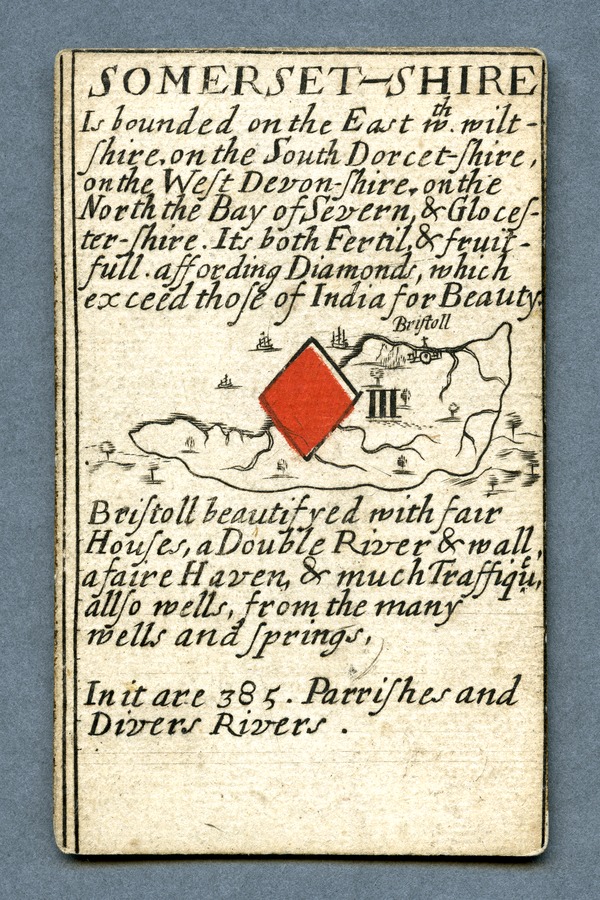 SOMERSET-SHIRE
Is bounded on the East wth. wilt-
ſhire, on the South Dorcet-ſhire,
on the Weſt Devon-ſhire, on the
North the Bay of Severn, & Gloceſ-
ter-ſhire. Its both Fertil, & fruit-
full. affording Diamonds, which
exceed thoſe of India for Beauty.
Briſtoll
III
Briſtoll beautifyed with fair
Houſes, a Double River & wall,
a faire Haven, & much Traffique,
allſo wells, from the many
wells and ſprings,
In it are 385. Parriſhes and
Divers Rivers.